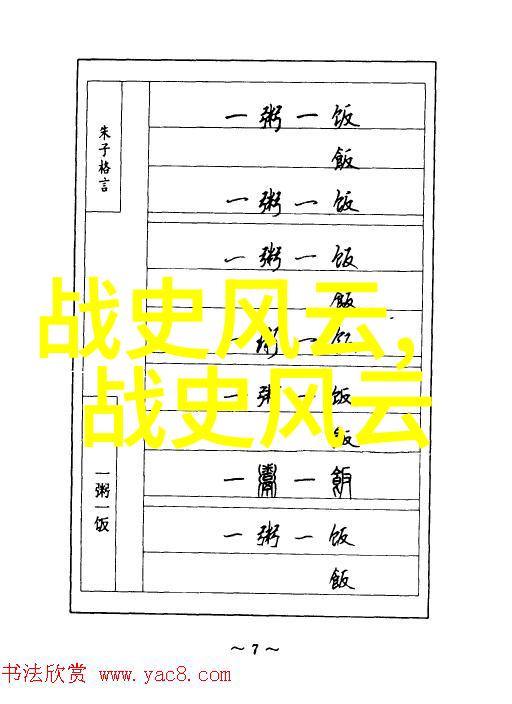 朱子格言
一粥一饭
一粥一饭
飯
一粥一饭
一粥一饭
飯
一粥一饭
一粥一饭
飯
一粥一飯
一粥一饭
飯
战史风云,
战史风云
~ 7 ~
书法欣赏
www.yac8.com